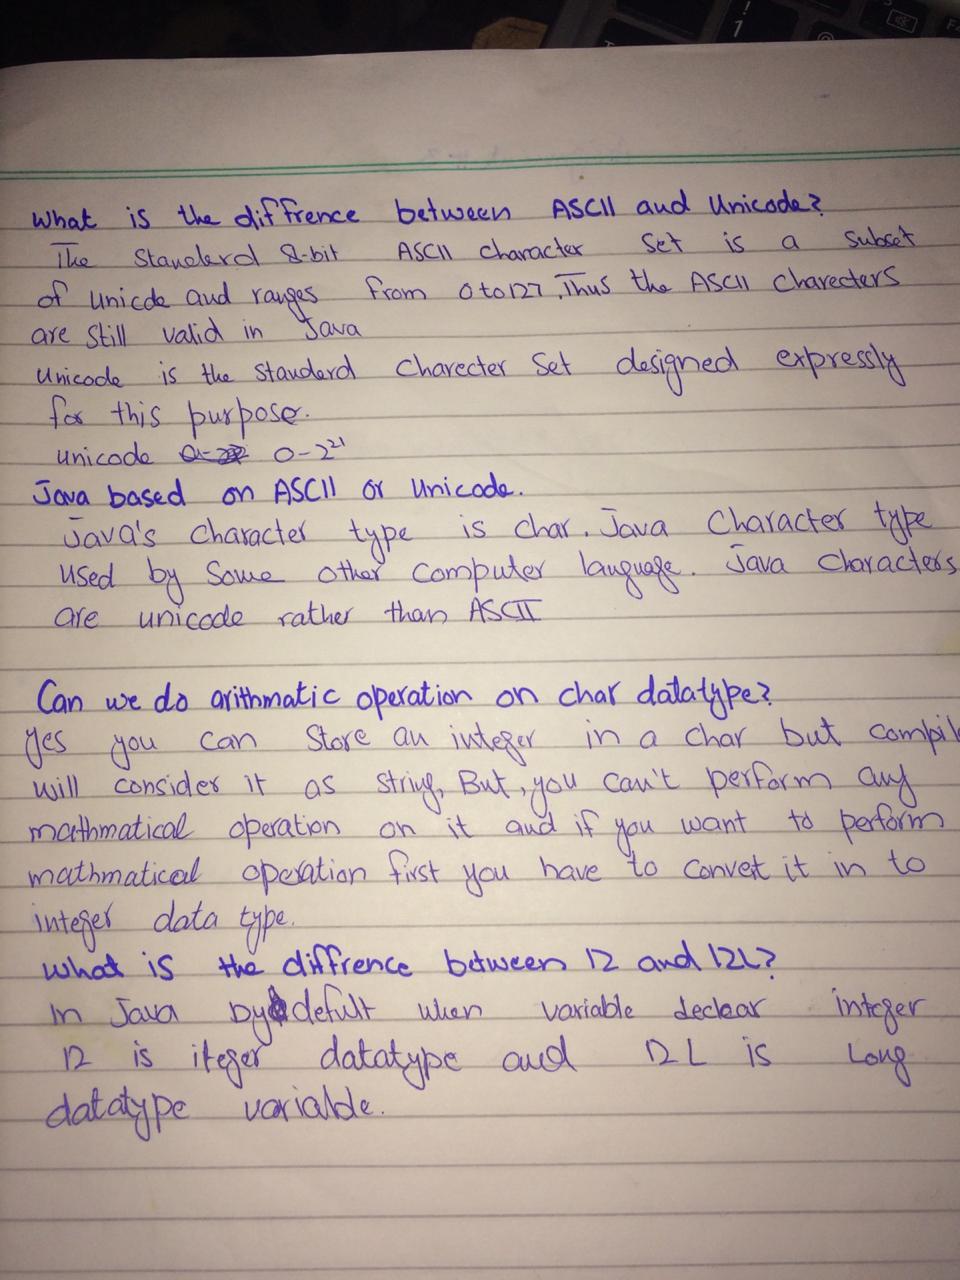 What is the diffrence between ASCII and Unicode?
The Standerd 8-bit ASCII character Set is a Subset
of Unicde and ranges from 0 to 127. Thus the ASCII Charecters
are Still valid in Java
Unicode is the Standerd Charecter Set designed expressly
for this purpose.
unicode 0-2²¹
Java based on ASCII or Unicode.
Java's Character type is char. Java Character type
used by Some other Computer language. Java Characters
are unicode rather than ASCII
Can we do arithmatic operation on char datatype?
Yes you can Store an integer in a char but compil
will consider it as String, But, you can't perform any
mathmatical operation on it and if you want to perform
mathmatical operation first you have to Convert it in to
integer data type.
What is the diffrence between 12 and 12L?
In Java by defult when variable declear integer
12 is iteger datatype and 12 L is Long
datatype variable.